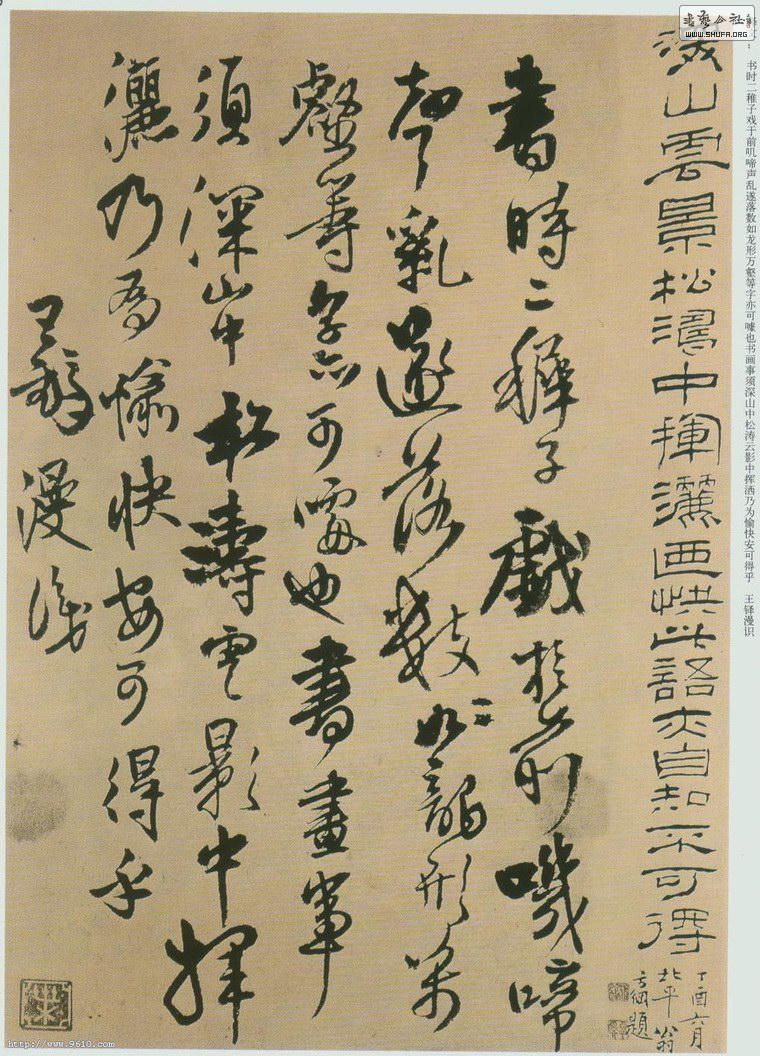 書艺公社
WWW.SHUFA.ORG
书时二稚子戏于前叽啼声乱遂落数如龙形万壑等字亦可噱也书画事须深山中松涛云影中挥洒乃为愉快安可得乎 王铎漫识
山雲景松濤中揮灑画快此語夫自知不可得
丁酉六月
北平翁
方綱題
書時二稺子戲於前嘰啼
聲亂遂落數如龍形萬
壑等字亦可噱也書畫事
須深山中松濤雲影中揮
灑乃為愉快安可得乎
王鐸漫識
http://www.9610.com